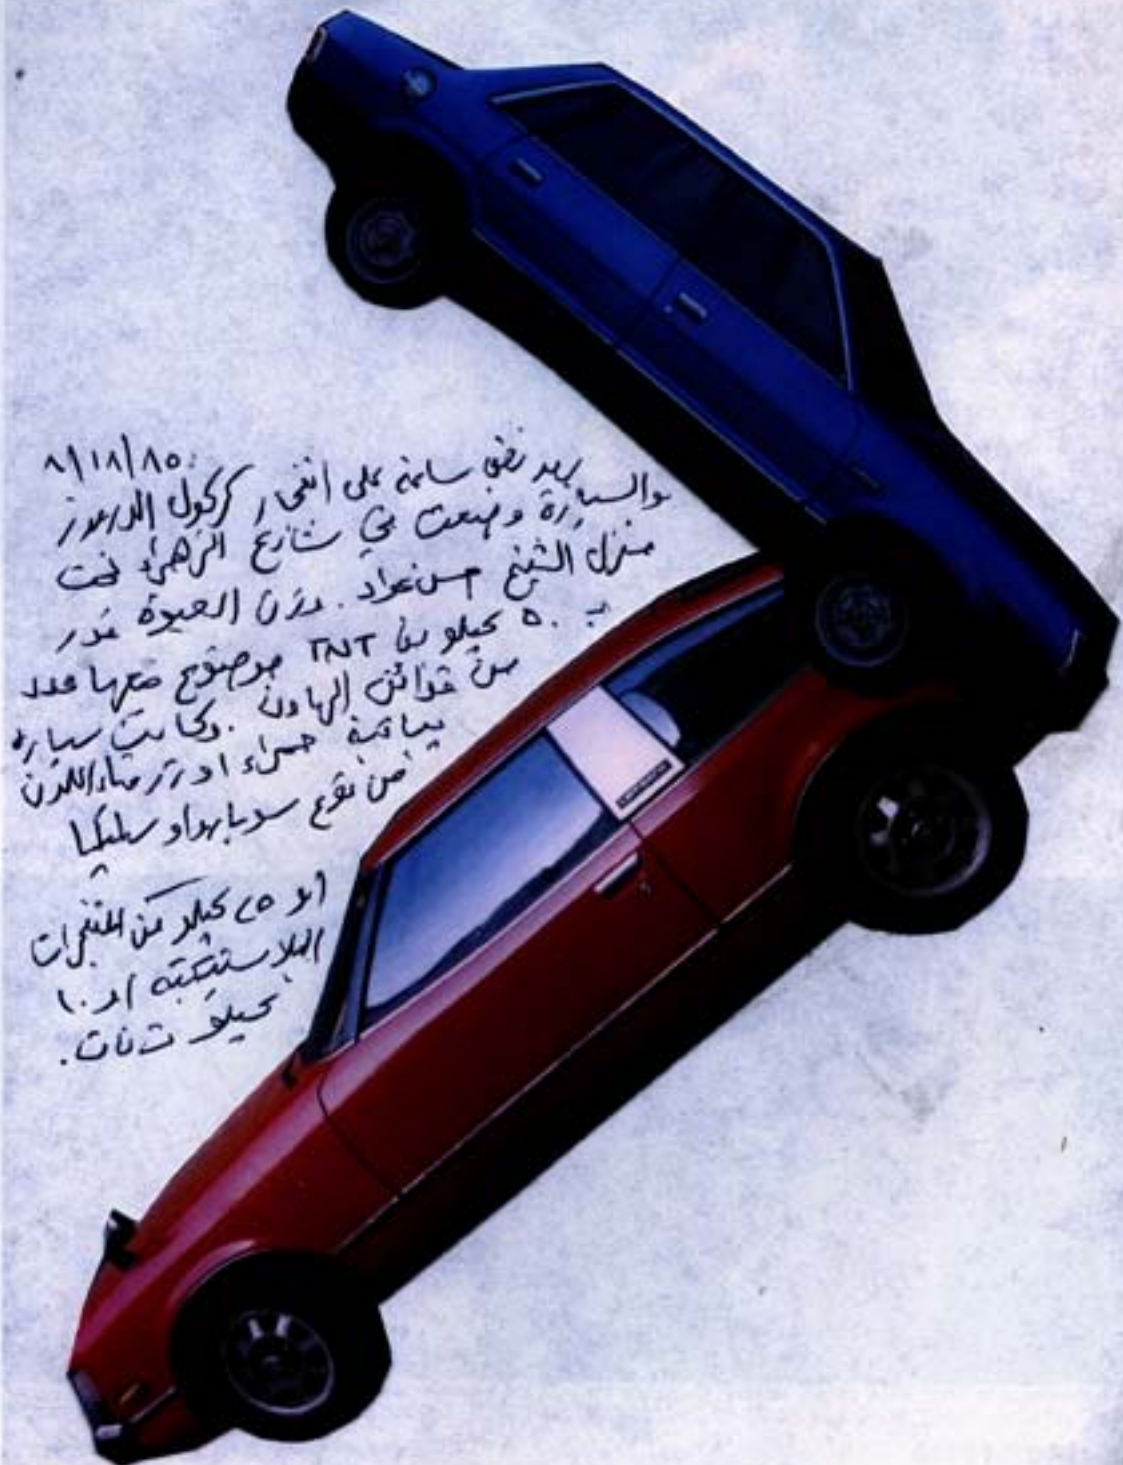 ٨/١٨/٨٥
بعد نصف ساعة على انفجار كركول الدروز
والسيارة وضعت في شارع الزهراء تحت
منزل الشيخ حسن عواد. وزن العبوة قدر
ب ٥٠ كيلو من TNT موضوع معها عدد
من قذائف الهاون. وكانت سيارة
يابانية حمراء او زرقاء اللون
من نوع سوبارو او سيليكا
او ٢٥ كيلو من المتفجرات
البلاستيكية او ١٠
كيلو ت ن ت.